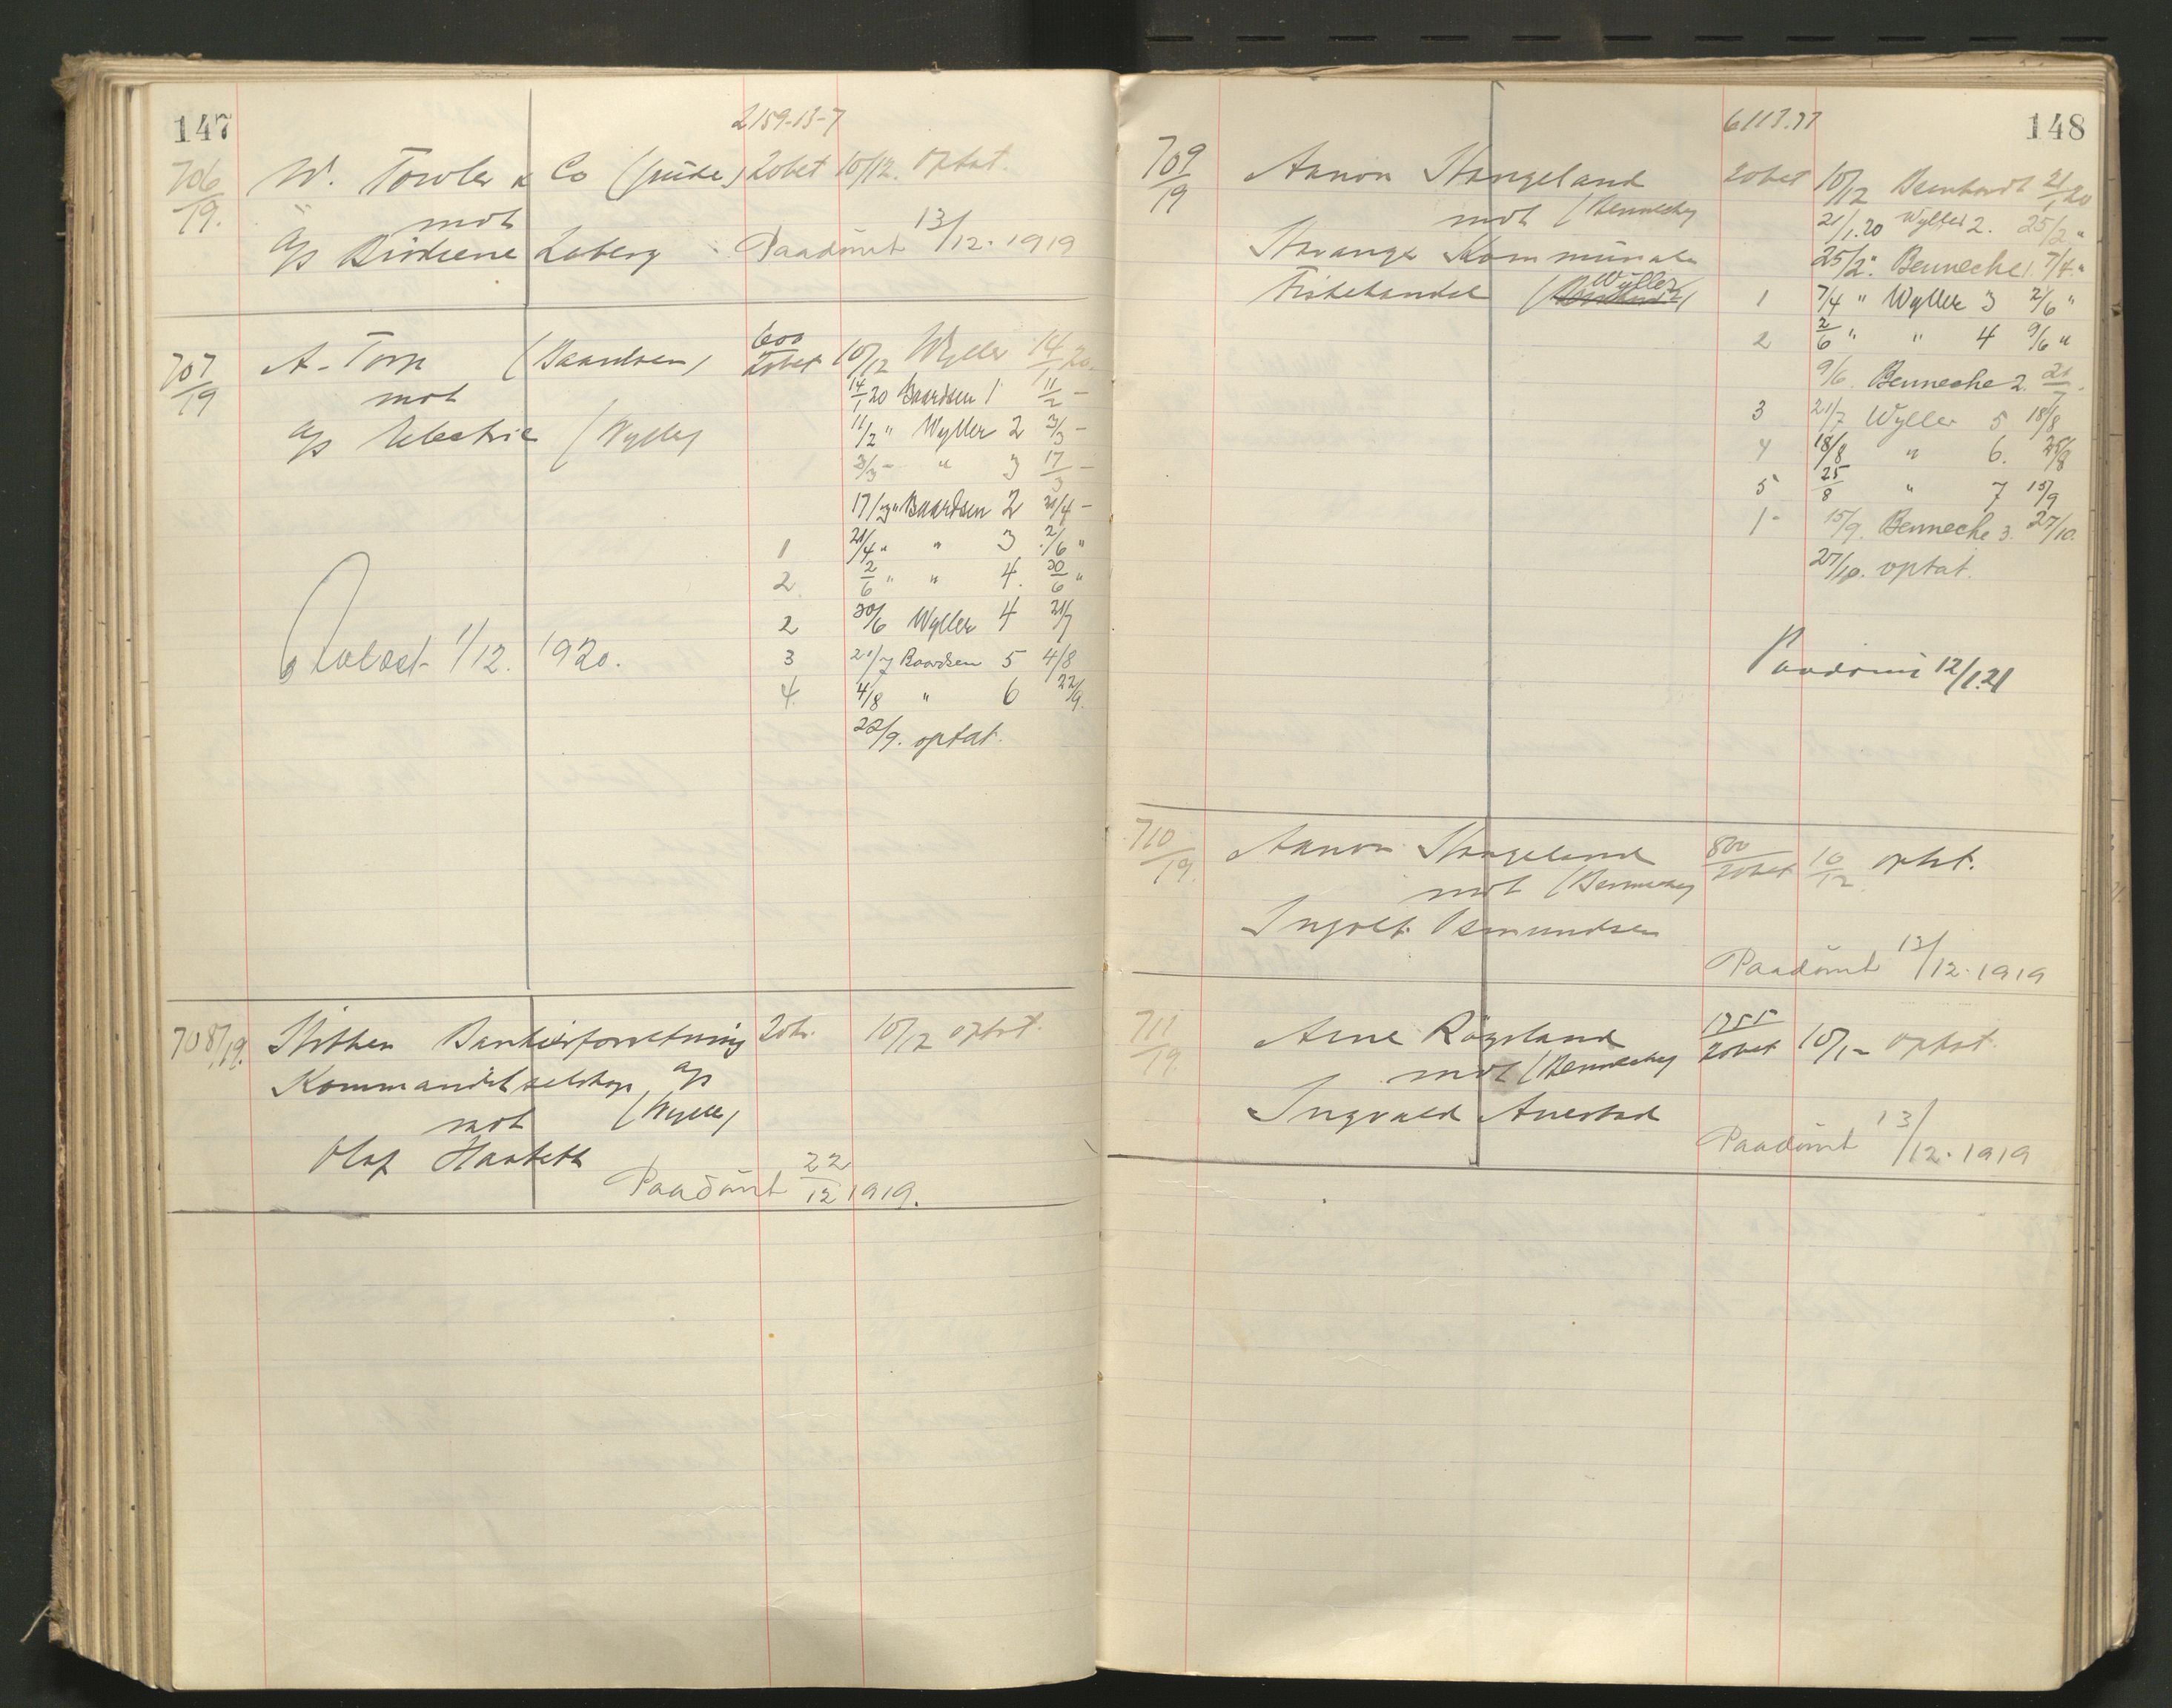 147
2159-13-7
706/19. W. Towler & Co (Juúde) 20bet 10/12. optat.
mot
A/S Brødrene Laberg Paadømt 13/12. 1919
707/19 A. Torp (Baardsen) 600 20bet 10/12 Wyller 14/1 20.
mot 14/1 20 Baardsen 1 11/2 -
A/S Electric (Wyller) 11/2 " Wyller 2 2/3 -
2/3 - " 3 17/3 -
17/3 " Baardsen 2 21/4 -
1 21/4 " " 3 2/6 "
2 2/6 " " 4. 30/6 "
2 30/6 Wyller 4 21/7
1/12. 1920. 3 21/7 Baardsen 5 4/8
4 4/8 " 6 22/9.
22/9. optat.
708/19. Bankierforretning 20b. 10/12 optat.
Kommanditselskap A/S
mot (Wyller)
Olaf
Paadømt 22/12 1919.
148
709/19 Aanon Stangeland 20bet 10/12 21/1 20
mot (Benneche) 21/1.20 Wyller 2. 25/2 "
Stavanger Kommunale 25/2 " Benneche 1. 7/4 "
Wyller
Fiskehandel 1 7/4 " Wyller 3 2/6 "
2 2/6 " " 4 9/6 "
9/6. Benneche 2. 21/7.
3 21/7 Wyller 5 18/8
4 18/8 " 6. 25/8
5 25/8 " 7 15/9
1 - 15/9. Benneche 3. 27/10.
27/10. optat.
Paadømt 12/1.21
710/19. Aanon Stangeland 800 20bet 10/12 optat.
mot (Benneche)
Ingolf Osmundsen
Paadømt 13/12. 1919
711/19. Arne Rögeland 20bet optat.
mot (Benneche)
Ingvald Auestad
Paadømt 13/12. 1919